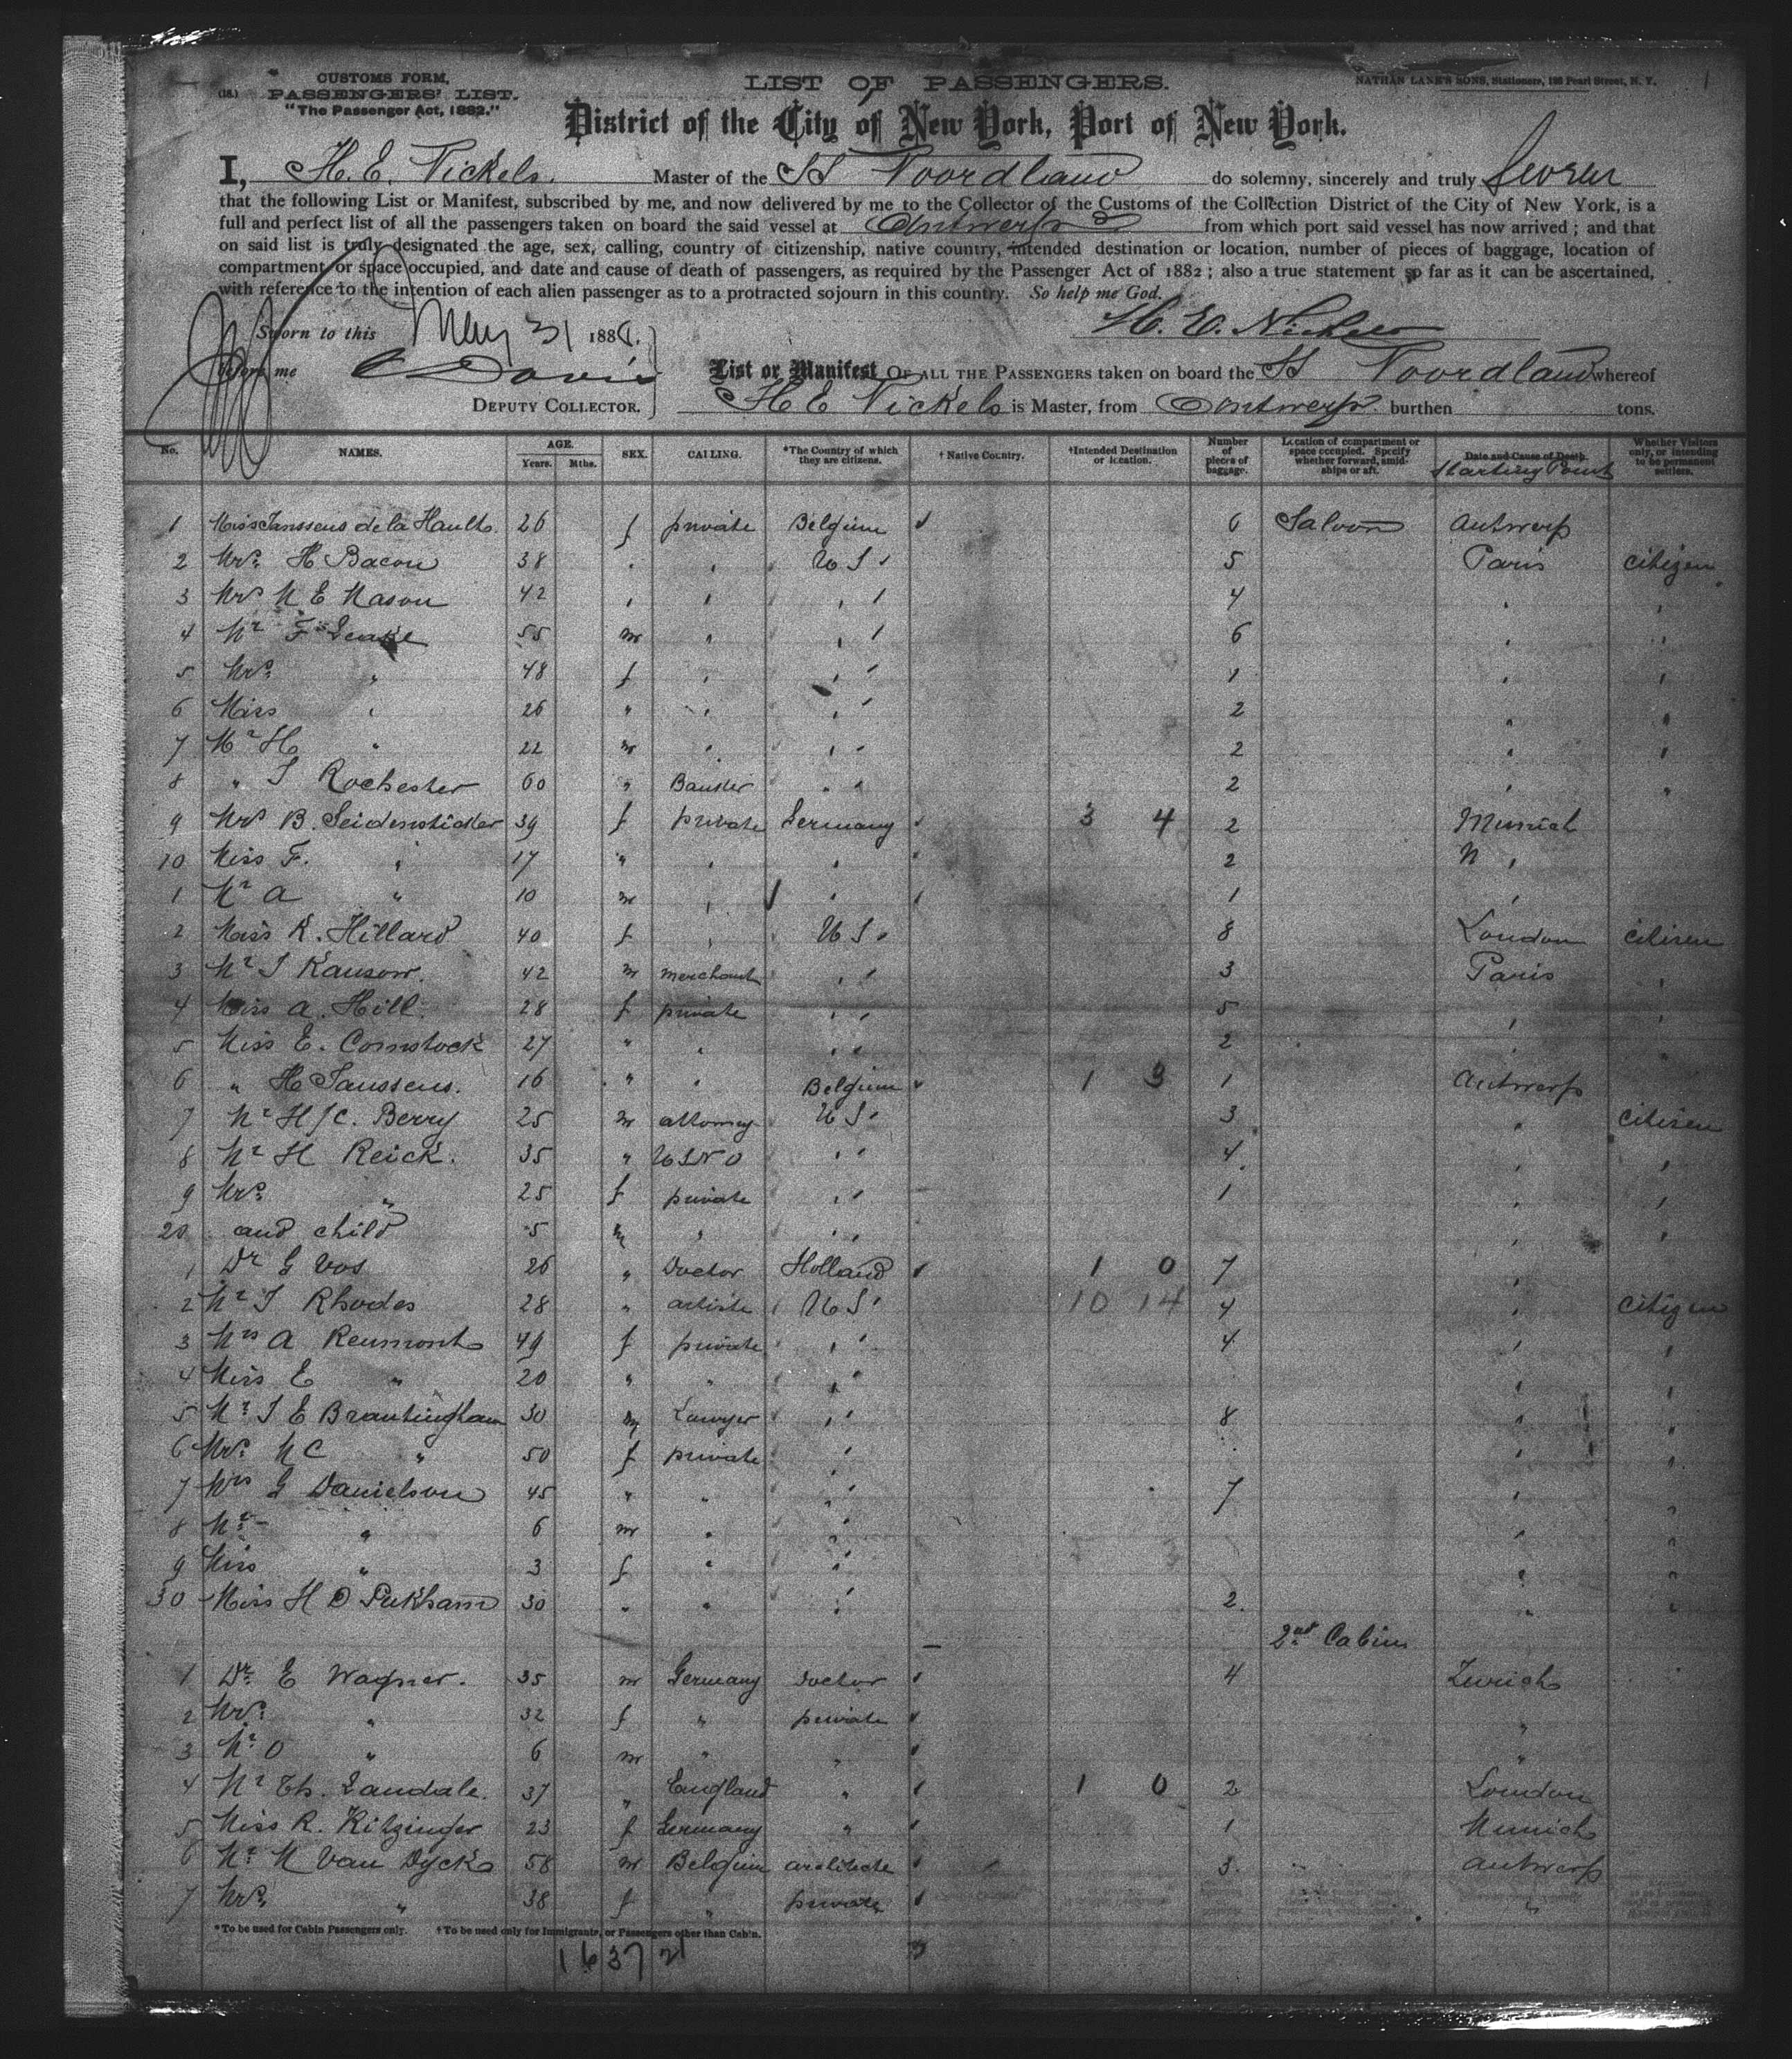 CUSTOMS FORM,
(18.) PASSENGERS' LIST.
"The Passenger Act, 1882."
LIST OF PASSENGERS.
NATHAN LANE'S SONS, Stationers, 196 Pearl Street, N. Y.
District of the City of New York, Port of New York.
I, H. E. Nickels. Master of the SS Noordland do solemny, sincerely and truly swear
that the following List or Manifest, subscribed by me, and now delivered by me to the Collector of the Customs of the Collection District of the City of New York, is a
full and perfect list of all the passengers taken on board the said vessel at Antwerp from which port said vessel has now arrived; and that
on said list is truly designated the age, sex, calling, country of citizenship, native country, intended destination or location, number of pieces of baggage, location of
compartment or space occupied, and date and cause of death of passengers, as required by the Passenger Act of 1882; also a true statement so far as it can be ascertained,
with reference to the intention of each alien passenger as to a protracted sojourn in this country. So help me God.
H. E. Nickels
Sworn to this May 31 188
before me Davis
DEPUTY COLLECTOR.
List or Manifest OF ALL THE PASSENGERS taken on board the SS Noordland whereof
H E Nickels is Master, from Antwerp burthen tons.
No. NAMES. AGE. Years. Mths. SEX. CALLING. *The Country of which they are citizens. † Native Country. †Intended Destination or location. Number of pieces of baggage. Location of compartment or space occupied. Specify whether forward, amidships or aft. Date and Cause of Death. Starting Point Whether Visitors only, or intending to be permanent settlers.
1 Miss Janssens de la Hault 26 f private Belgium 6 Saloon Antwerp
2 Mrs H Bacon 38 " " U S 5 Paris citizen
3 Mrs M E Mason 42 " " " 4 " "
4 Mr F Leake 55 m " " 6 " "
5 Mrs " 48 f " " 1 " "
6 Miss " 26 " " " 2 " "
7 Mr H " 22 m " " 2 " "
8 " J Rochester 60 " Banker " 2 " "
9 Mrs B. Seidensticker 39 f private Germany 3 4 2 Munich
10 Miss F. " 17 " " " 2 "
1 Mr A " 10 m " " 1 "
2 Miss R. Hillard 40 f " U S 8 London citizen
3 Mr J Ransom. 42 m merchant " 3 Paris "
4 Miss A. Hill. 28 f private " 5 " "
5 Miss E. Comstock 27 " " " 2 " "
6 " H Janssens. 16 " " Belgium 1 3 1 Antwerp
7 Mr H/C. Berry 25 m attorney U S 3 " citizen
8 Mr H Reick. 35 " U S N O " 4 " "
9 Mrs " 25 f private " 1 " "
20 and child 5 m " " " "
1 Dr G Vos 26 " Doctor Holland 1 0 7 "
2 Mr J Rhodes 28 " artiste U S 10 14 4 " citizen
3 Mrs A Reumont 49 f private " 4 " "
4 Miss E " 20 " " " " "
5 Mr J E Brantingham 30 m Lawyer " 8 " "
6 Mrs M C " 50 f private " " "
7 Mrs G Danielson 45 " " " 7 " "
8 Mr " 6 m " " " "
9 Miss " 3 f " " " "
30 Miss H D Peckham 30 " " " 2 " "
2nd Cabin
1 Dr E Wagner. 35 m Germany Doctor 4 Zurich
2 Mrs " 32 f " private "
3 Mr O " 6 m " " "
4 Mr Th. Landale. 37 " England " 1 0 2 London
5 Miss R. Kitzinger 23 f Germany " 1 Munich
6 Mr M Van Dyck 58 m Belgium architecte 3 Antwerp
7 Mrs " 38 f " private "
*To be used for Cabin Passengers only. †To be used only for Immigrants, or Passengers other than Cabin.
1 6 37 21